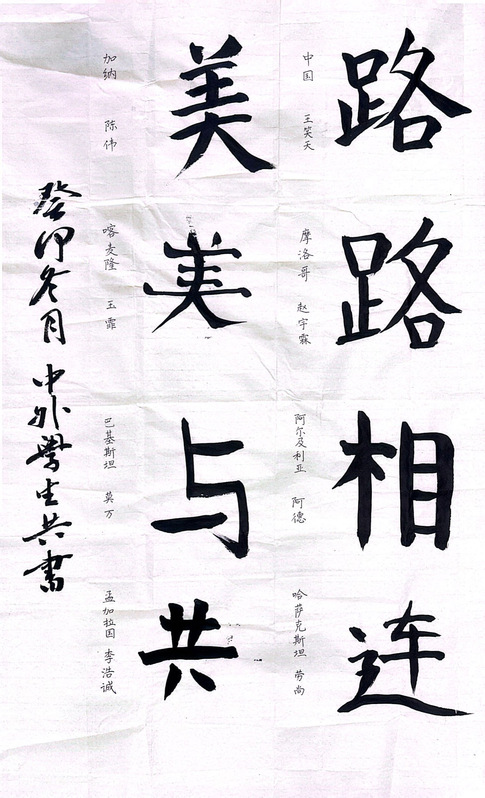 路路相连
中国 王笑天
摩洛哥 赵宇霖
阿尔及利亚 阿德
哈萨克斯坦 劳尚
美美与共
加纳 陈伟
喀麦隆 玉霏
巴基斯坦 莫万
孟加拉国 李浩诚
癸卯冬月 中外學生共書